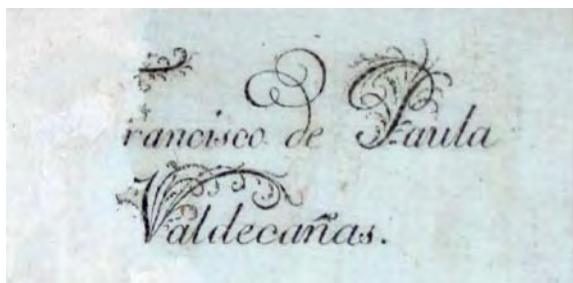 Francisco de Paula
Valdecañas.